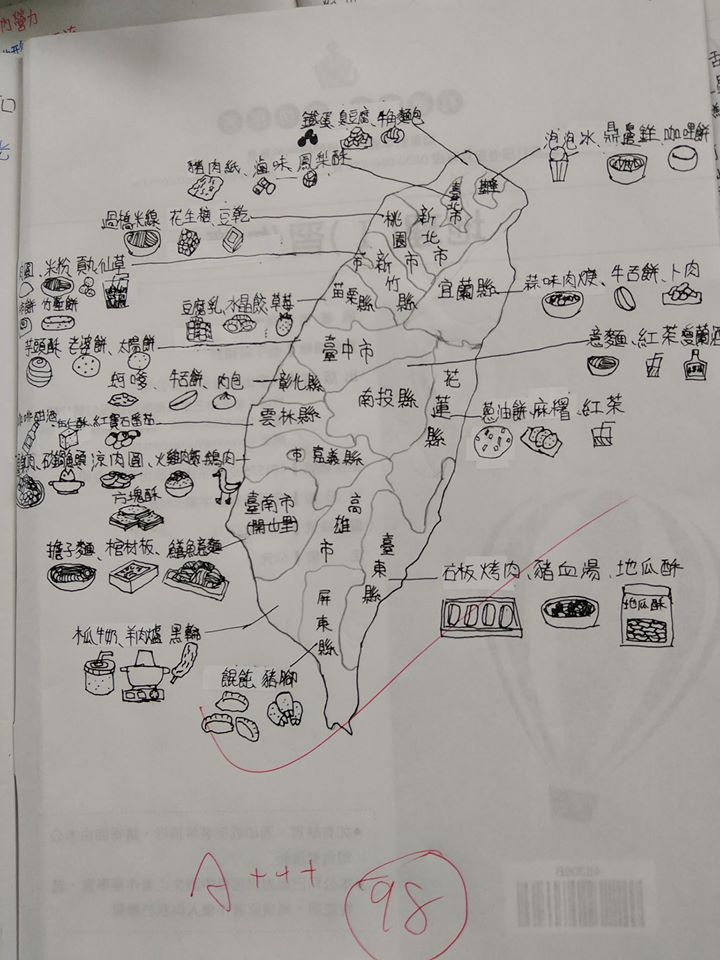 內營力
鐵蛋、臭豆腐、牛角麵包
泡泡冰、鼎邊銼、咖哩餅
豬肉紙、滷味、鳳梨酥
臺北市
過橋米線 花生糖、豆乾
桃園市
新北市
圓、米粉、貢丸、仙草
餅 竹塹餅
市
新竹縣
宜蘭縣
蒜味肉羹、牛舌餅、卜肉
豆腐乳、水晶餃、草莓
苗栗縣
芋頭酥、老婆餅、太陽餅
臺中市
意麵、紅茶、愛蘭酒
蚵嗲、牛舌餅、肉包
彰化縣
南投縣
花蓮縣
蔥油餅、麻糬、紅茶
咖啡
酥、紅寶石番茄
雲林縣
砂鍋魚頭、涼肉圓、火雞肉飯、鵝肉
市 嘉義縣
方塊酥
臺南市
高雄市
擔子麵、棺材板、鱔魚意麵
臺東縣
石板烤肉、豬血湯、地瓜酥
地瓜酥
屏東縣
木瓜牛奶、羊肉爐 黑輪
餛飩、豬腳
A+++
98